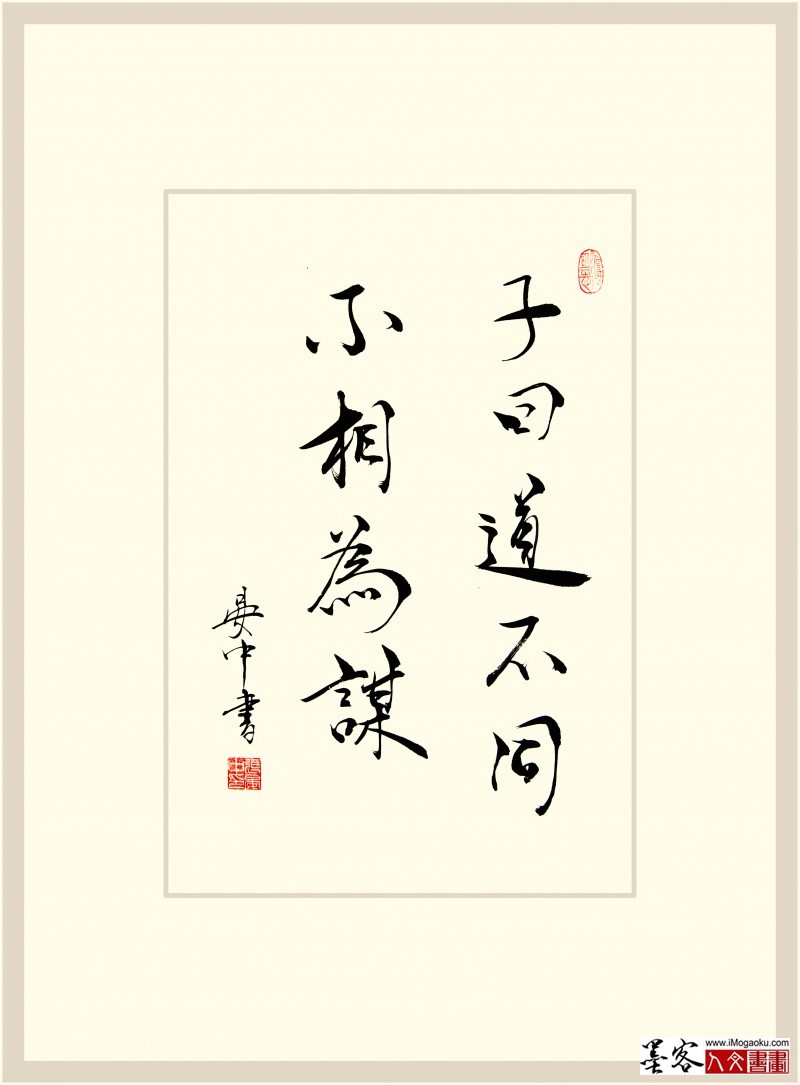 子曰道不同
不相為謀
晏中書
墨客
www.iMogaoku.com
人文書畫